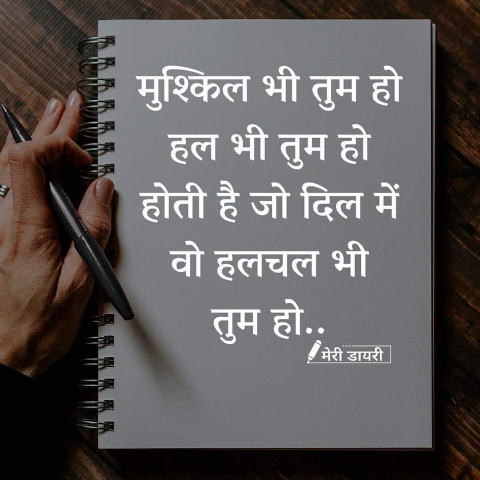 मुश्किल भी तुम हो
हल भी तुम हो
होती है जो दिल में
वो हलचल भी
तुम हो..
मेरी डायरी